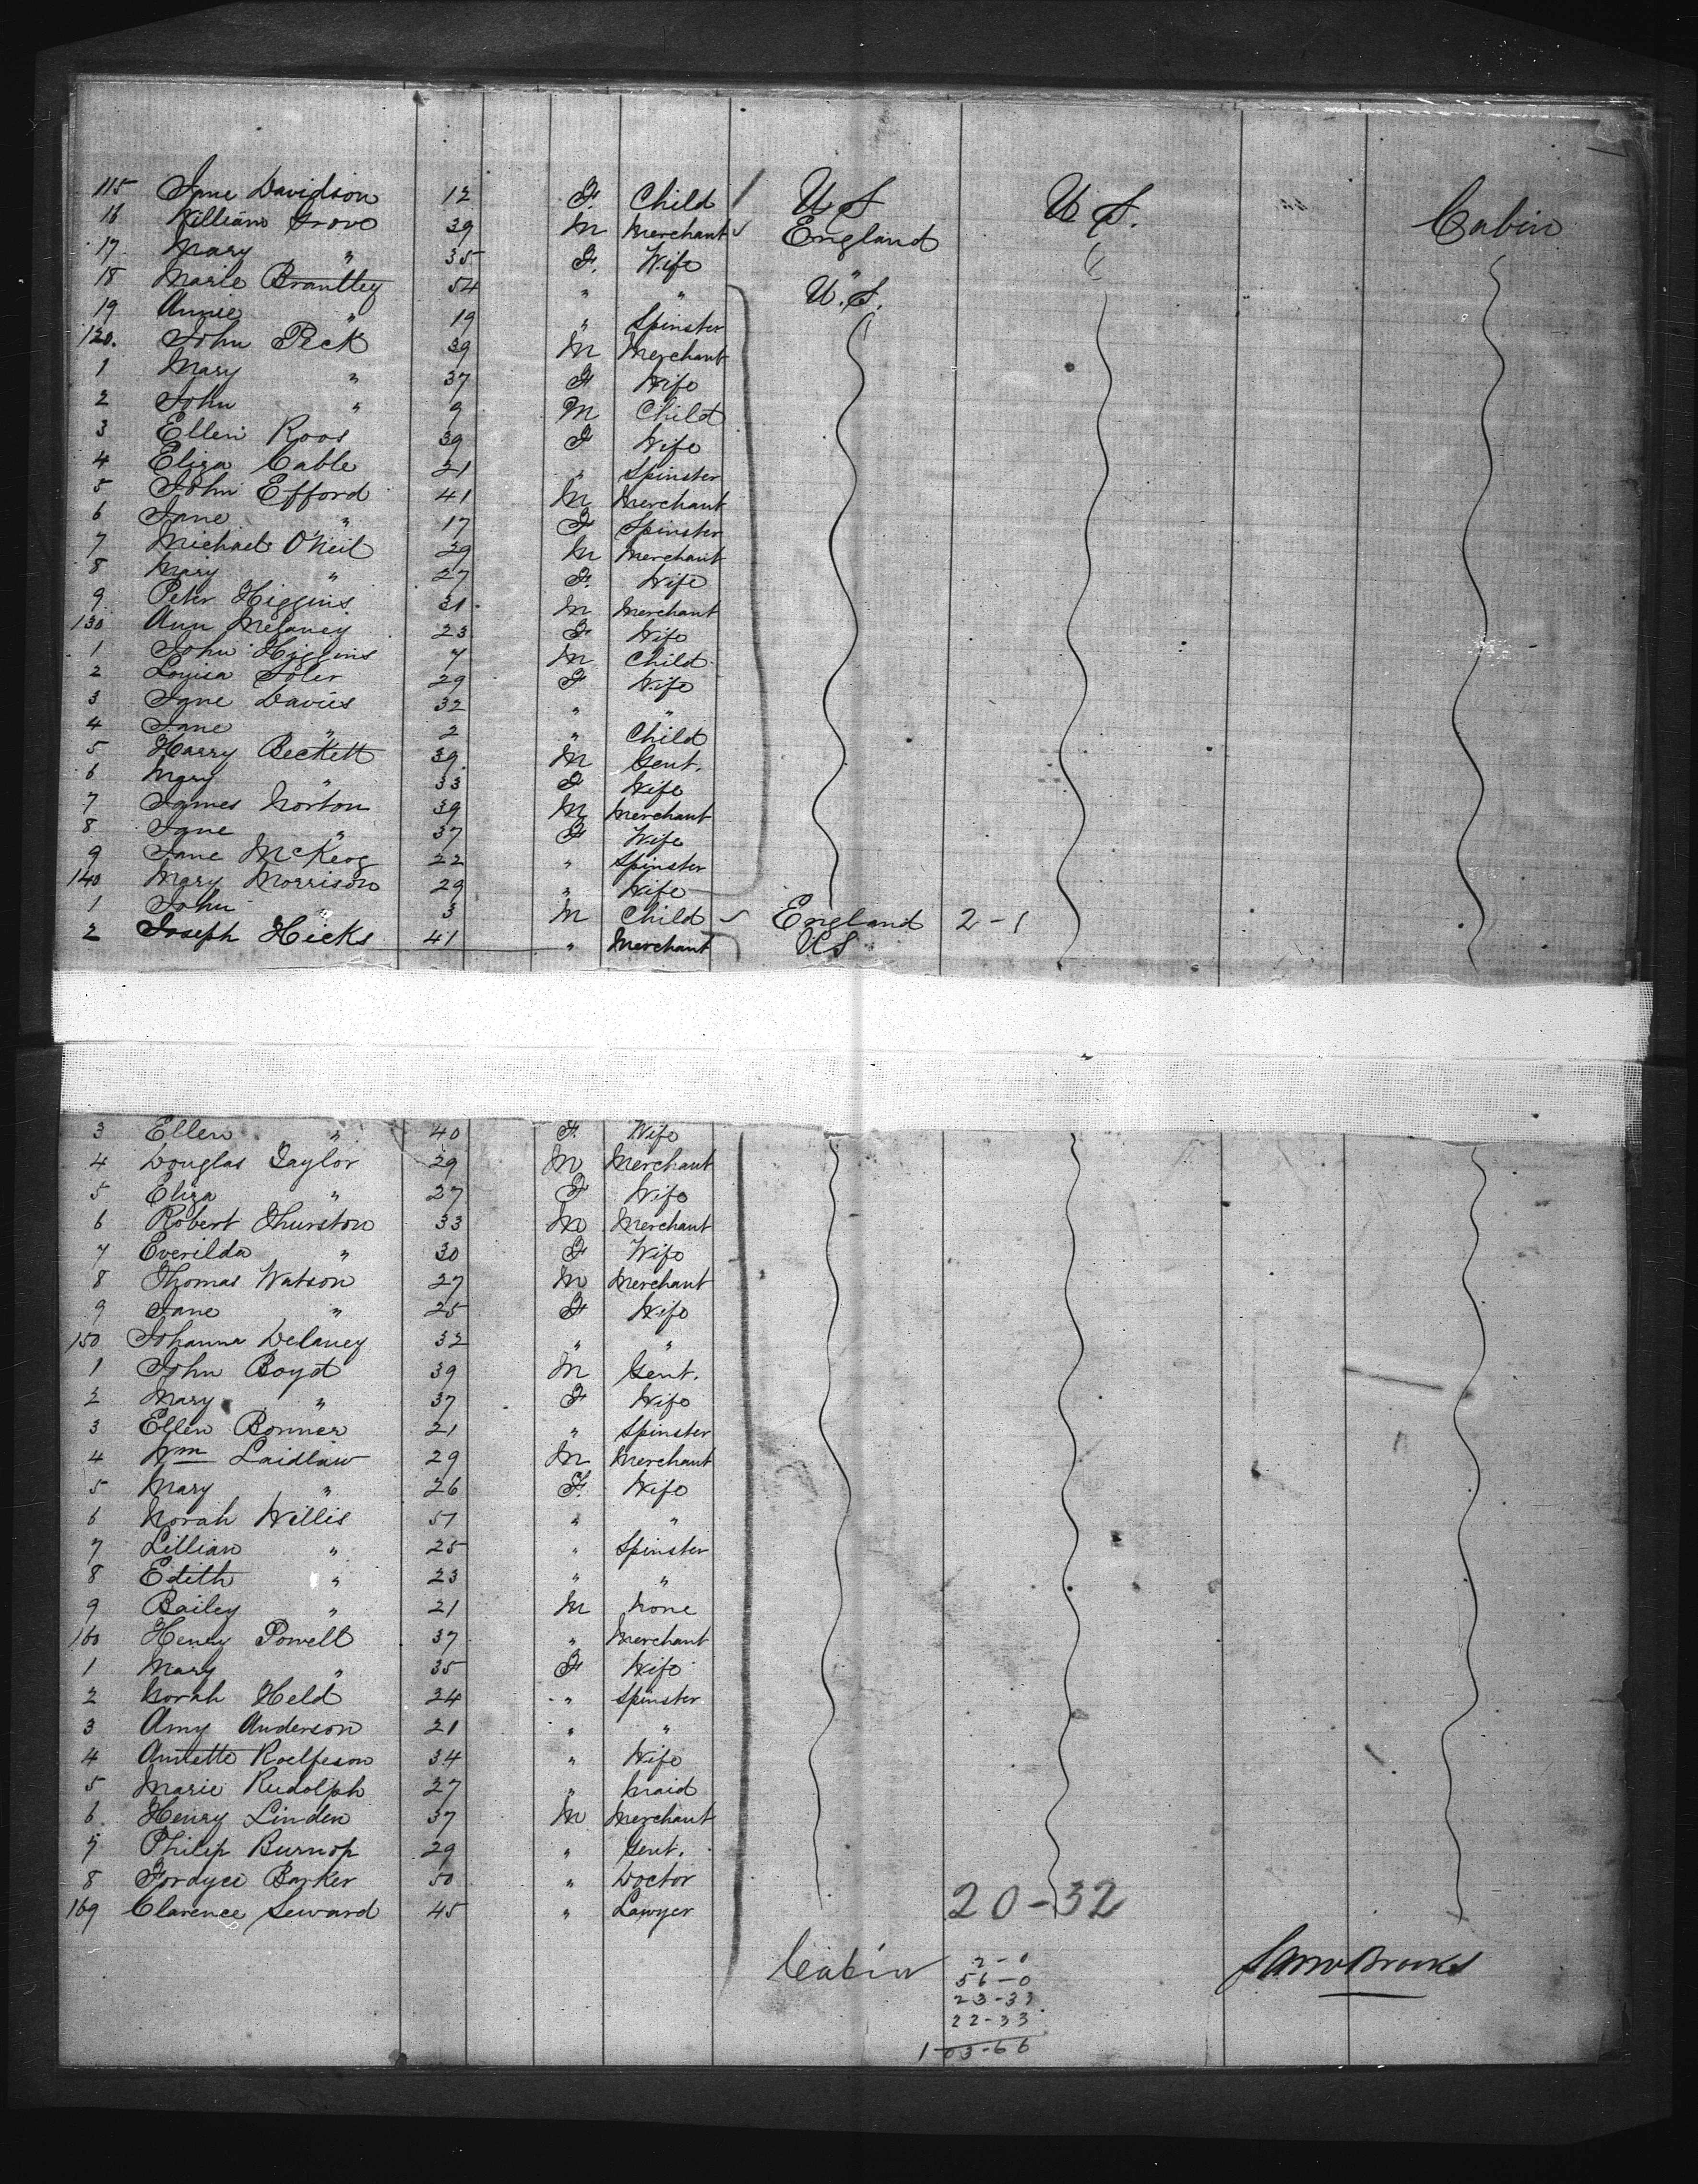 115 Jane Davidson 12 F. Child U S U S. Cabin
16 William Grove 39 M Merchant England
17 Mary " 35 F. Wife "
18 Marie Brantley 54 " " U.S.
19 Annie " 19 " Spinster
120. John Peck 39 M Merchant
1 Mary " 37 F Wife
2 John " 9 M Child
3 Ellen Roos 39 F Wife
4 Eliza Cable 21 " Spinster
5 John Efford 41 M Merchant
6 Jane " 17 F Spinster
7 Michael O'Neil 29 M Merchant
8 Mary " 27 F. Wife
9 Peter Higgins 31 M Merchant
130 Ann 23 F Wife
1 John Higgins 7 M Child
2 Louisa 29 F Wife
3 Jane Davies 32 " "
4 Jane " 2 " Child
5 Harry Beckett 39 M Gent.
6 Mary " 33 F Wife
7 James Norton 39 M Merchant
8 Jane " 37 F Wife
9 Jane McKeog 22 " Spinster
140 Mary Morrison 29 " Wife
1 John " 3 M Child England 2-1
2 Joseph Hicks 41 " Merchant US
3 Ellen " 40 F. Wife
4 Douglas Taylor 29 M Merchant
5 Eliza " 27 F Wife
6 Robert Thurston 33 M Merchant
7 Everilda " 30 F Wife
8 Thomas Watson 27 M Merchant
9 Jane " 25 F Wife
150 Johanna Delaney 32 " "
1 John Boyd 39 M Gent.
2 Mary " 37 F Wife
3 Ellen Bonner 21 " Spinster
4 Wm Laidlaw 29 M Merchant
5 Mary " 26 F. Wife
6 Norah Willis 51 " "
7 Lillian " 25 " Spinster
8 Edith " 23 " "
9 Bailey " 21 M None
160 Henry Powell 37 " Merchant
1 Mary " 35 F Wife
2 Norah Held 24 " Spinster
3 Amy Anderson 21 " "
4 Annette Roelfeson 34 " Wife
5 Marie Rudolph 27 " Maid
6. Henry Linden 37 M Merchant
7 Philip Burnop 29 " Gent.
8 Fordyce Barker 50 " Doctor
169 Clarence Seward 45 " Lawyer
20-32
Cabin 2-0
56-0
23-33
22-33
103-66
Brooks